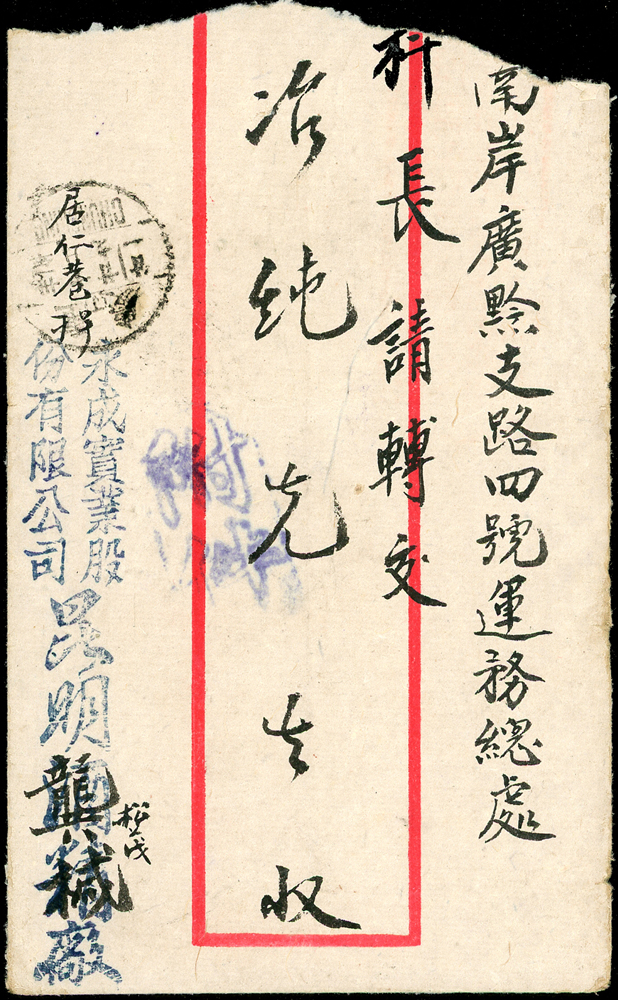 南岸廣黔支路四號運務總處
科長請轉交
冶純先生收
居仁巷
永成實業股
份有限公司
昆明
廠
松茂
龔緘